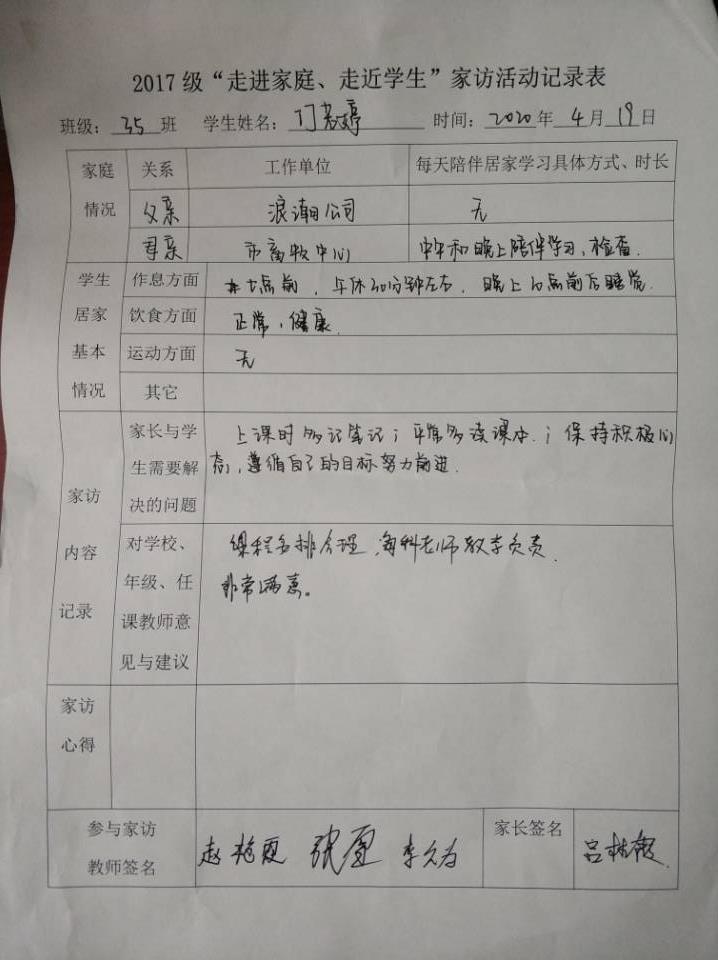 2017级“走进家庭、走近学生”家访活动记录表
班级: 35 班 学生姓名: 丁 婷 时间: 2020 年 4 月 19 日
家庭情况 关系 工作单位 每天陪伴居家学习具体方式、时长
父亲 浪潮公司 无
母亲 市畜牧中心 中午和晚上陪伴学习、检查.
学生居家基本情况 作息方面 七点前, 午休30分钟左右, 晚上10点前后睡觉.
饮食方面 正常, 健康.
运动方面 无
其它
家访内容记录 家长与学生需要解决的问题
上课时多记笔记; 平常多读课本.; 保持积极心
态, 遵循自己的目标努力前进.
对学校、年级、任课教师意见与建议
课程安排合理 每科老师教学负责.
非常满意。
家访心得
参与家访教师签名 赵艳 张 李 家长签名 吕桂霞